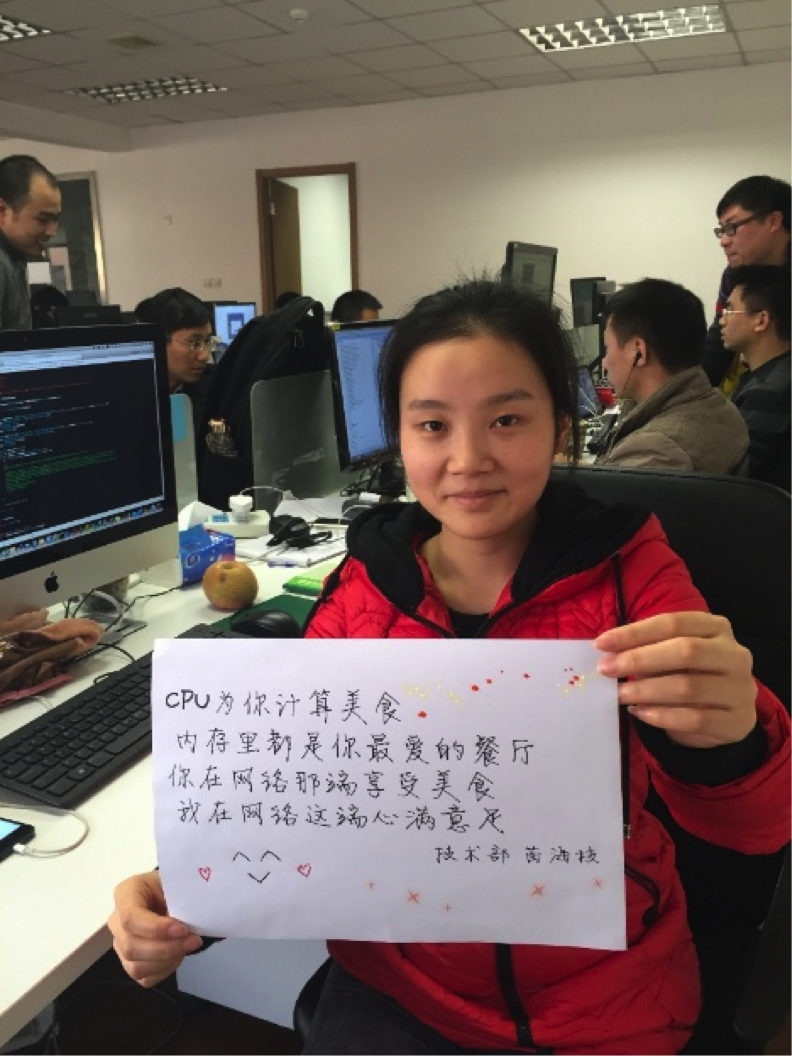 CPU为你计算美食
内存里都是你最爱的餐厅
你在网络那端享受美食
我在网络这端心满意足
技术部 苗海枝